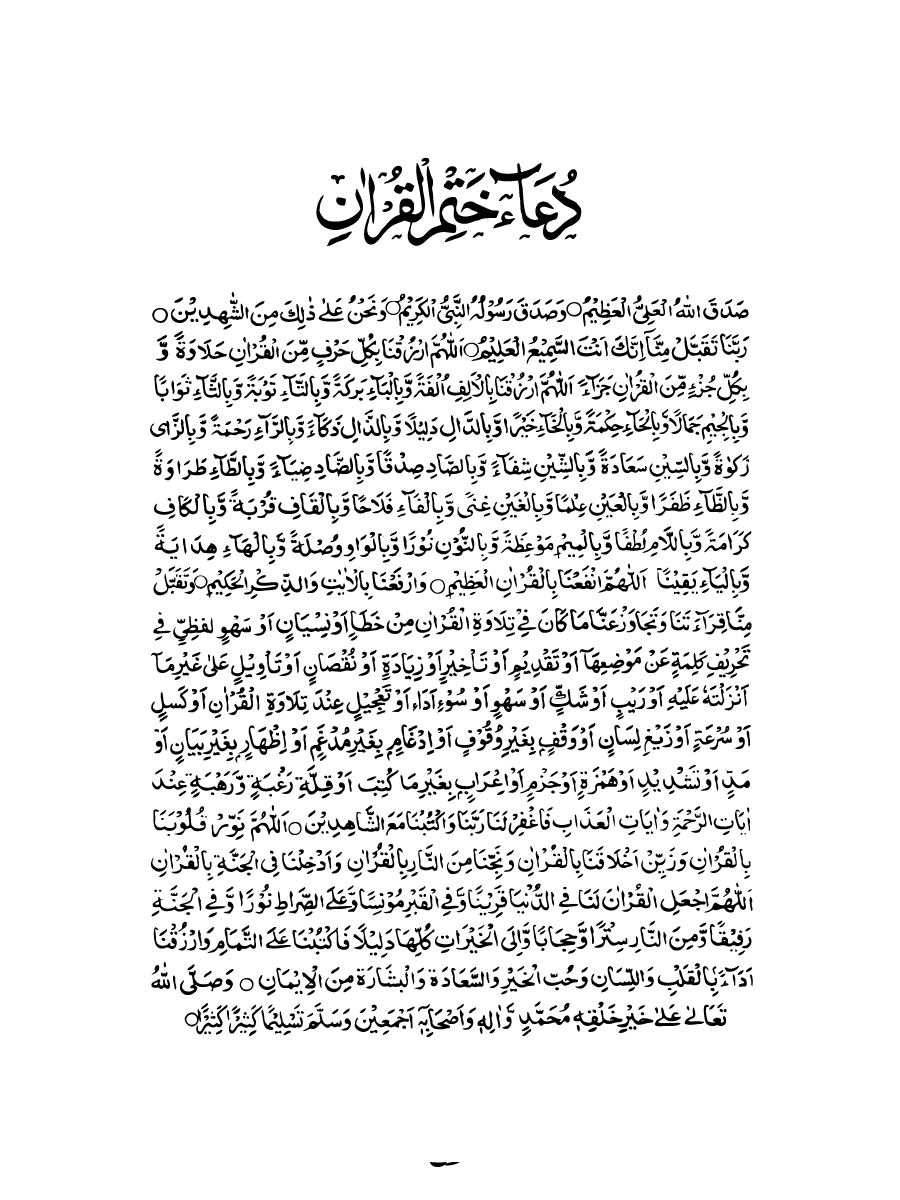 دُعَآءُ خَتْمِ الْقُرْاٰنِ
صَدَقَ اللّٰهُ الْعَلِیُّ الْعَظِیْمُ○ وَصَدَقَ رَسُوْلُهُ النَّبِیُّ الْكَرِیْمُ○ وَنَحْنُ عَلٰى ذٰلِكَ مِنَ الشّٰهِدِیْنَ ○
رَبَّنَا تَقَبَّلْ مِنَّآ اِنَّكَ اَنْتَ السَّمِیْعُ الْعَلِیْمُ○ اَللّٰهُمَّ ارْزُقْنَا بِكُلِّ حَرْفٍ مِّنَ الْقُرْاٰنِ حَلَاوَةً وَّ
بِكُلِّ جُزْءٍ مِّنَ الْقُرْاٰنِ جَزَآءً اَللّٰهُمَّ ارْزُقْنَا بِالْاَلِفِ اُلْفَةً وَّبِالْبَآءِ بَرَكَةً وَّبِالتَّآءِ تَوْبَةً وَّبِالثَّآءِ ثَوَابًا
وَّبِالْجِیْمِ جَمَالًا وَّبِالْحَآءِ حِكْمَةً وَّبِالْخَآءِ خَیْرًا وَّبِالدَّالِ دَلِیْلًا وَّبِالذَّالِ ذَكَآءً وَّبِالرَّآءِ رَحْمَةً وَّبِالزَّایِ
زَكٰوةً وَّبِالسِّیْنِ سَعَادَةً وَّبِالشِّیْنِ شِفَآءً وَّبِالصَّادِ صِدْقًا وَّبِالضَّادِ ضِیَآءً وَّبِالطَّآءِ طَرَاوَةً
وَّبِالظَّآءِ ظَفَرًا وَّبِالْعَیْنِ عِلْمًا وَّبِالْغَیْنِ غِنًی وَّبِالْفَآءِ فَلَاحًا وَّبِالْقَافِ قُرْبَةً وَّبِالْكَافِ
كَرَامَةً وَّبِاللَّامِ لُطْفًا وَّبِالْمِیْمِ مَوْعِظَةً وَّبِالنُّوْنِ نُوْرًا وَّبِالْوَاوِ وُصْلَةً وَّبِالْهَآءِ هِدَایَةً
وَّبِالْیَآءِ یَقِیْنًا اَللّٰهُمَّ انْفَعْنَا بِالْقُرْاٰنِ الْعَظِیْمِ○ وَارْفَعْنَا بِالْاٰیٰتِ وَالذِّكْرِ الْحَكِیْمِ○ وَتَقَبَّلْ
مِنَّا قِرَآءَتَنَا وَتَجَاوَزْ عَنَّا مَا كَانَ فِیْ تِلَاوَةِ الْقُرْاٰنِ مِنْ خَطَاٍ اَوْ نِسْیَانٍ اَوْ سَهْوٍ لفظیٍّ فِی
تَحْرِیْفِ كَلِمَةٍ عَنْ مَوْضِعِهَآ اَوْ تَقْدِیْمٍ اَوْ تَاْخِیْرٍ اَوْ زِیَادَةٍ اَوْ نُقْصَانٍ اَوْ تَاْوِیْلٍ عَلٰى غَیْرِ مَآ
اَنْزَلْتَهٗ عَلَیْهِ اَوْ رَیْبٍ اَوْ شَكٍّ اَوْ سَهْوٍ اَوْ سُوْٓءِ اَدَاءٍ اَوْ تَعْجِیْلٍ عِنْدَ تِلَاوَةِ الْقُرْاٰنِ اَوْ كَسَلٍ
اَوْ سُرْعَةٍ اَوْ زَیْغِ لِسَانٍ اَوْ وَقْفٍ بِغَیْرِ وُقُوْفٍ اَوْ اِدْغَامٍ بِغَیْرِ مُدْغَمٍ اَوْ اِظْهَارٍ بِغَیْرِ بَیَانٍ اَوْ
مَدٍّ اَوْ تَشْدِیْدٍ اَوْ هَمْزَةٍ اَوْ جَزْمٍ اَوْ اِعْرَابٍ بِغَیْرِ مَا كُتِبَ اَوْ قِلَّةِ رَغْبَةٍ وَّرَهْبَةٍ عِنْدَ
اٰیَاتِ الرَّحْمَةِ وَاٰیَاتِ الْعَذَابِ فَاغْفِرْ لَنَا رَبَّنَا وَاكْتُبْنَا مَعَ الشَّاهِدِیْنَ○ اَللّٰهُمَّ نَوِّرْ قُلُوْبَنَا
بِالْقُرْاٰنِ وَزَیِّنْ اَخْلَاقَنَا بِالْقُرْاٰنِ وَنَجِّنَا مِنَ النَّارِ بِالْقُرْاٰنِ وَاَدْخِلْنَا فِی الْجَنَّةِ بِالْقُرْاٰنِ
اَللّٰهُمَّ اجْعَلِ الْقُرْاٰنَ لَنَا فِی الدُّنْیَا قَرِیْنًا وَّفِی الْقَبْرِ مُوْنِسًا وَّعَلَى الصِّرَاطِ نُوْرًا وَّفِی الْجَنَّةِ
رَفِیْقًا وَّمِنَ النَّارِ سِتْرًا وَّحِجَابًا وَّاِلَى الْخَیْرَاتِ كُلِّهَا دَلِیْلًا فَاكْتُبْنَا عَلَى التَّمَامِ وَارْزُقْنَا
اَدَآءً بِالْقَلْبِ وَاللِّسَانِ وَحُبِّ الْخَیْرِ وَالسَّعَادَةِ وَالْبِشَارَةِ مِنَ الْاِیْمَانِ ○ وَصَلَّى اللّٰهُ
تَعَالٰى عَلٰى خَیْرِ خَلْقِهٖ مُحَمَّدٍ وَّاٰلِهٖ وَاَصْحَابِهٖٓ اَجْمَعِیْنَ وَسَلَّمَ تَسْلِیْمًا كَثِیْرًا كَثِیْرًا○